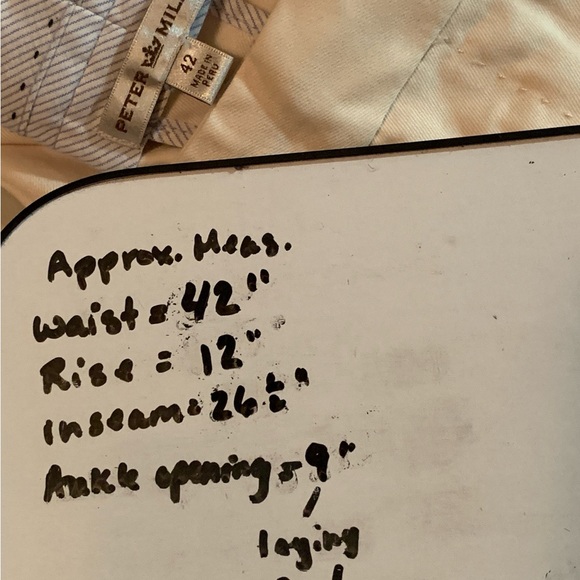 PETER MIL
42
MADE IN
PERU
Approx. Meas.
Waist = 42"
Rise = 12"
Inseam = 26 1/2"
Ankle opening = 9"
laying